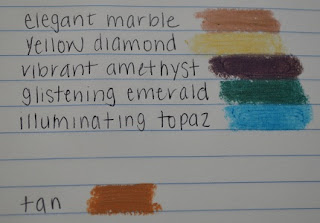 elegant marble
yellow diamond
vibrant amethyst
glistening emerald
illuminating topaz
tan